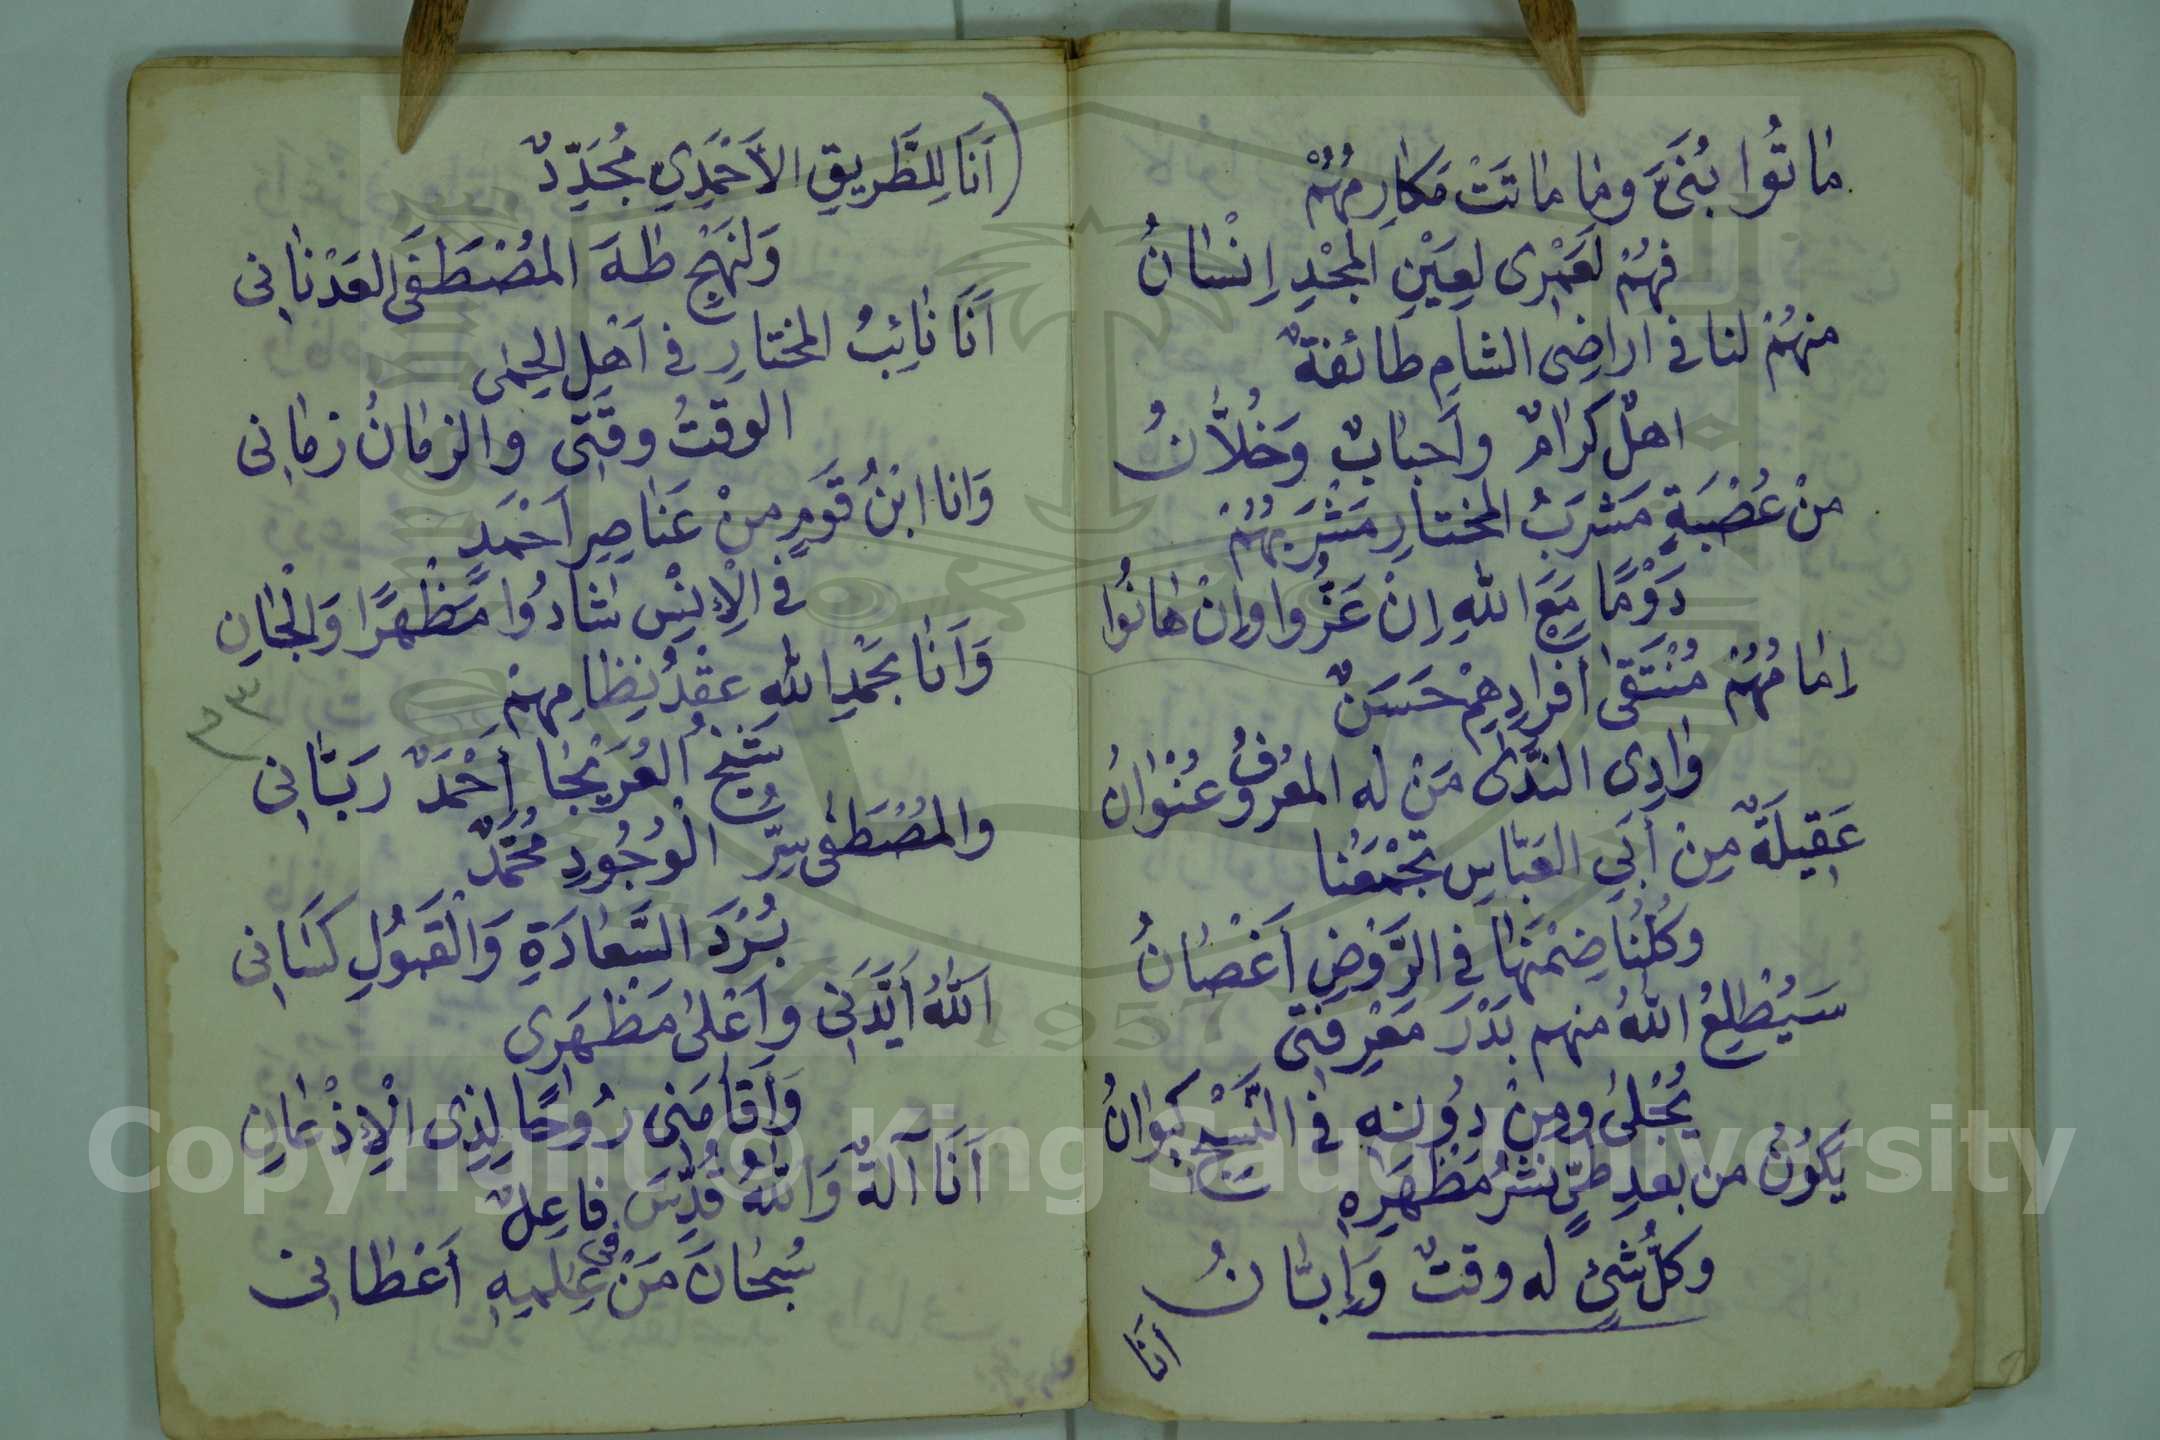 مَاتُوا بُنَيَّ ومَا مَاتَتْ مَكَارِمُهُمْ
فهُمْ لَعَمْرى لِعَيْنِ المجْدِ اِنْسَانُ
منهُمْ لنا فى اراضِى الشامِ طائفةٌ
اهلٌ كرامٌ واَحبابٌ وَخُلَّانُ
منْ عُصْبَةٍ مَشْرَبُ المختارِ مَشْرَبُهُمْ
دَوْمًا مَعَ اللهِ اِنْ عَزُّوا واِنْ هَانُوا
اِمَامُهُمْ مُنْتَقَى اَفرادِهِمْ حَسَنٌ
وَادِى النَّدَى مَنْ له المعْرُوفُ عُنْوَانُ
عَقِيلَةٌ مِنْ اَبَي العَبَّاسِ تجْمَعُنا
وكُلُّنَا ضِمْنَهَا فى الرَّوْضِ اَغْصَانُ
سَيُطْلِعُ اللهُ منهم بَدْرَ مَعْرِفتى
يُجْلَى ومِنْ دُونه فى النَّسْجِ كيوانُ
يَكُونُ من بعدِ طَىٍّ نَشْرُ مَظْهَرِهِ
وكلُّ شَىْءٍ له وقتٌ وَاِبَّانُ
اَنَا
اَنَا لِلطَّرِيقِ الاَحْمَدِيِ مُجَدِّدٌ
وَلِنَهْجِ طَهَ المُصْطَفَى العَدْنَانِى
اَنَا نَائِبُ المختارِ فى اَهْلِ الحِمَى
الوقتُ وقتى والزمَانُ زمَانِى
وَانا ابْنُ قَومٍ منْ عَنَاصِرِ اَحْمَدٍ
فى الْاِنْسِ شَادُوا مَظْهَرًا وَالْجَانِ
وَاَنَا بحَمْدِ اللهِ عقْدُ نِظَامِهِمْ
شَيْخُ العُرَيْجَا اَحْمَدٌ ربَّانِى
والمُصْطَفَى سِرُّ الْوُجُودِ مُحَمَّدٌ
بُرْدَ السَّعَادَةِ وَالْقَبُولِ كَسَانِى
اَللهُ اَيَّدَنِى واَعْلَى مَظْهَرِى
وَاَقَامَنى رُوحًا لِذِى الْاِذْعَانِ
اَنَا آلَةٌ وَاللهُ قُدِّسَ فَاعِلٌ
سُبْحَانَ مَنْ فى عِلمِهِ اَعْطَانِى
٢٣